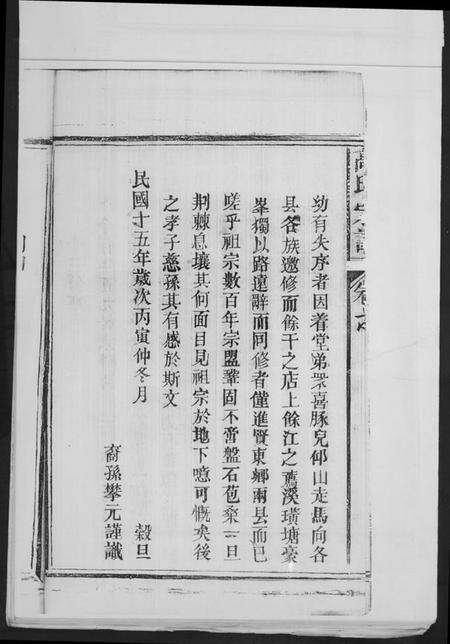 幼有失序者因着堂弟眾喜豚兒仰山走馬向各
縣各族邀修而餘干之店上餘江之鴬溪璜塘彚
峯獨以路遠辭而同修者僅進賢東鄉兩縣而已
嗟乎祖宗數百年宗盟鞏固不啻盤石苞桑一旦
荆棘息壤其何面目見祖宗於地下噫可慨矣後
之孝子慈孫其有感於斯文
民國十五年歲次丙寅仲冬月
穀旦
裔孫攀元謹識